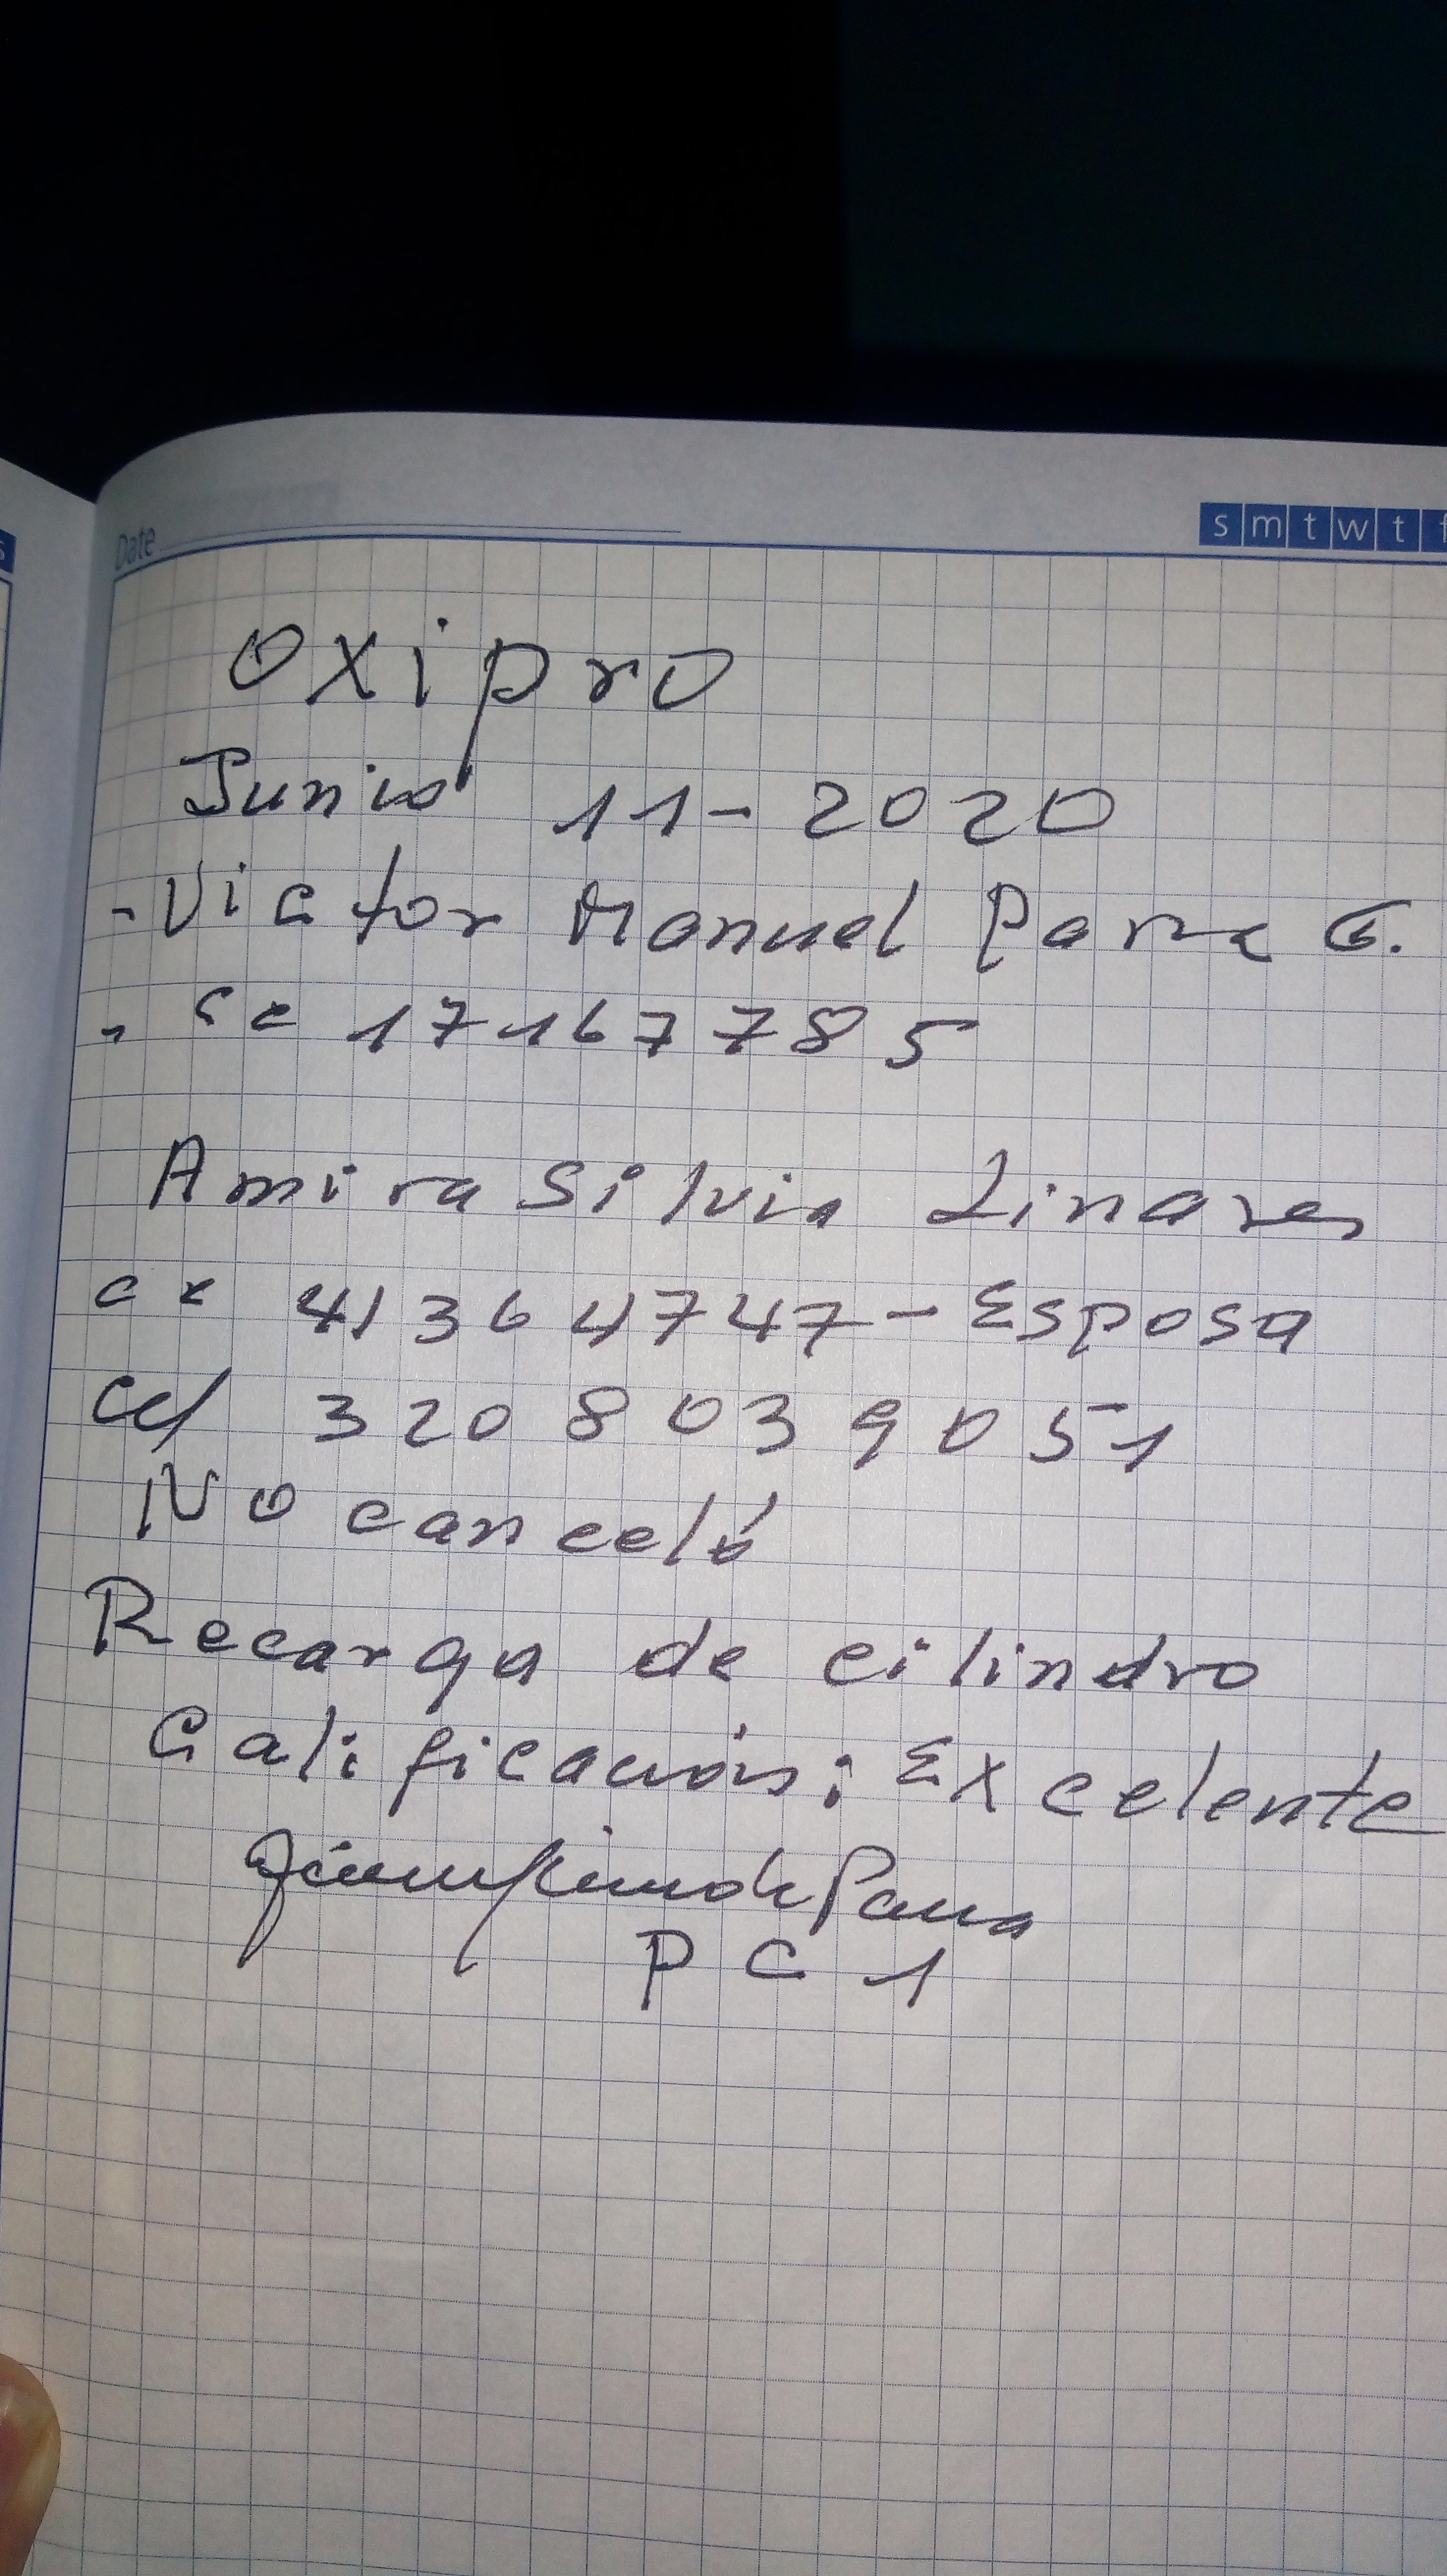 Date
s m t w t f
Oxipro
Junio 11-2020
-Victor Manuel Parra G.
cc 17167785
Amira Silvia Linares
cc 41364747-Esposa
cel 3208039051
No canceló
Recarga de cilindro
Calificación: Excelente
de Parra
PC1